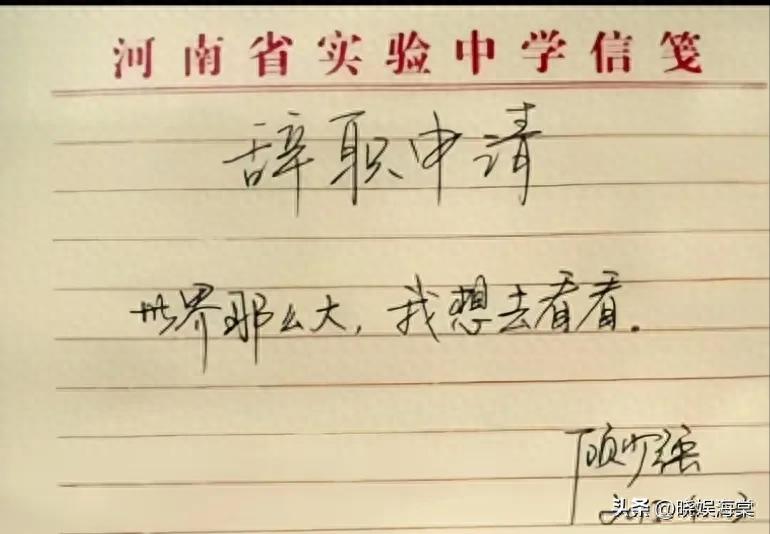 河南省实验中学信笺
辞职申请
世界那么大，我想去看看。
顾少强
头条 @晓娱海棠